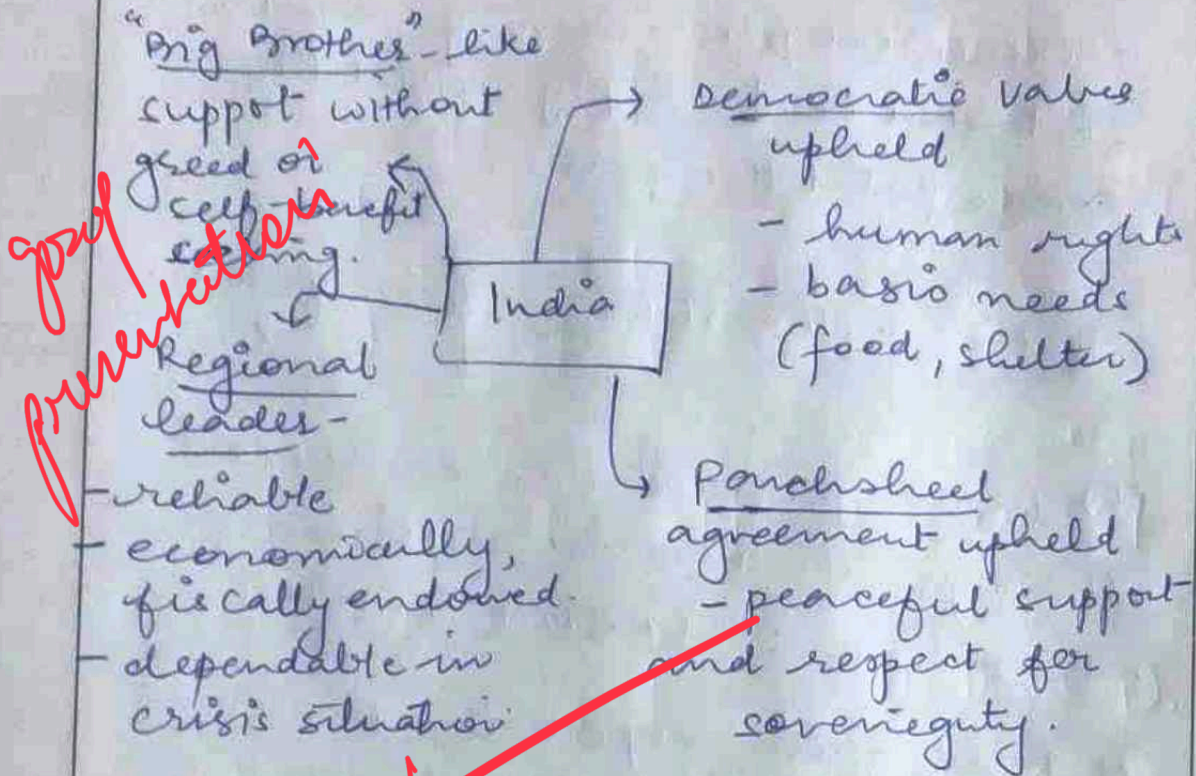 "Big Brother"-like
suppot without
greed or
self-benefit
seeking.
Regional
leader-
-reliable
- economically,
fiscally endowed.
- dependable in
crisis situation
India
Democratic values
upheld
- human rights
- basic needs
(food, shelter)
Panchsheel
agreement upheld
- peaceful support
and respect for
soverieguty.
good
presentation